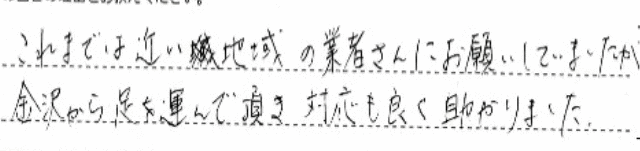 これまでは近い地域の業者さんにお願いしていましたが
金沢から足を運んで頂き 対応も良く助かりました。